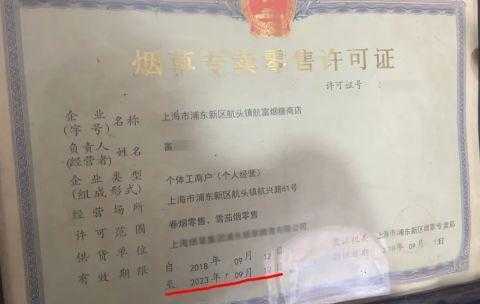 烟草专卖零售许可证
许可证号
企业(字号)名称 上海市浦东新区航头镇航富烟糖商店
负责人(经营者)姓名 富
企业类型(组成形式) 个体工商户(个人经营)
经营场所 上海市浦东新区航头镇航兴路61号
许可范围 卷烟零售、雪茄烟零售
供货单位 上海烟草集团浦东烟草
有效期限 自 2018 年 09 月 12 日
至 2023 年 09 月 12 日
上海市浦东新区烟草专卖局
2018 年 09 月